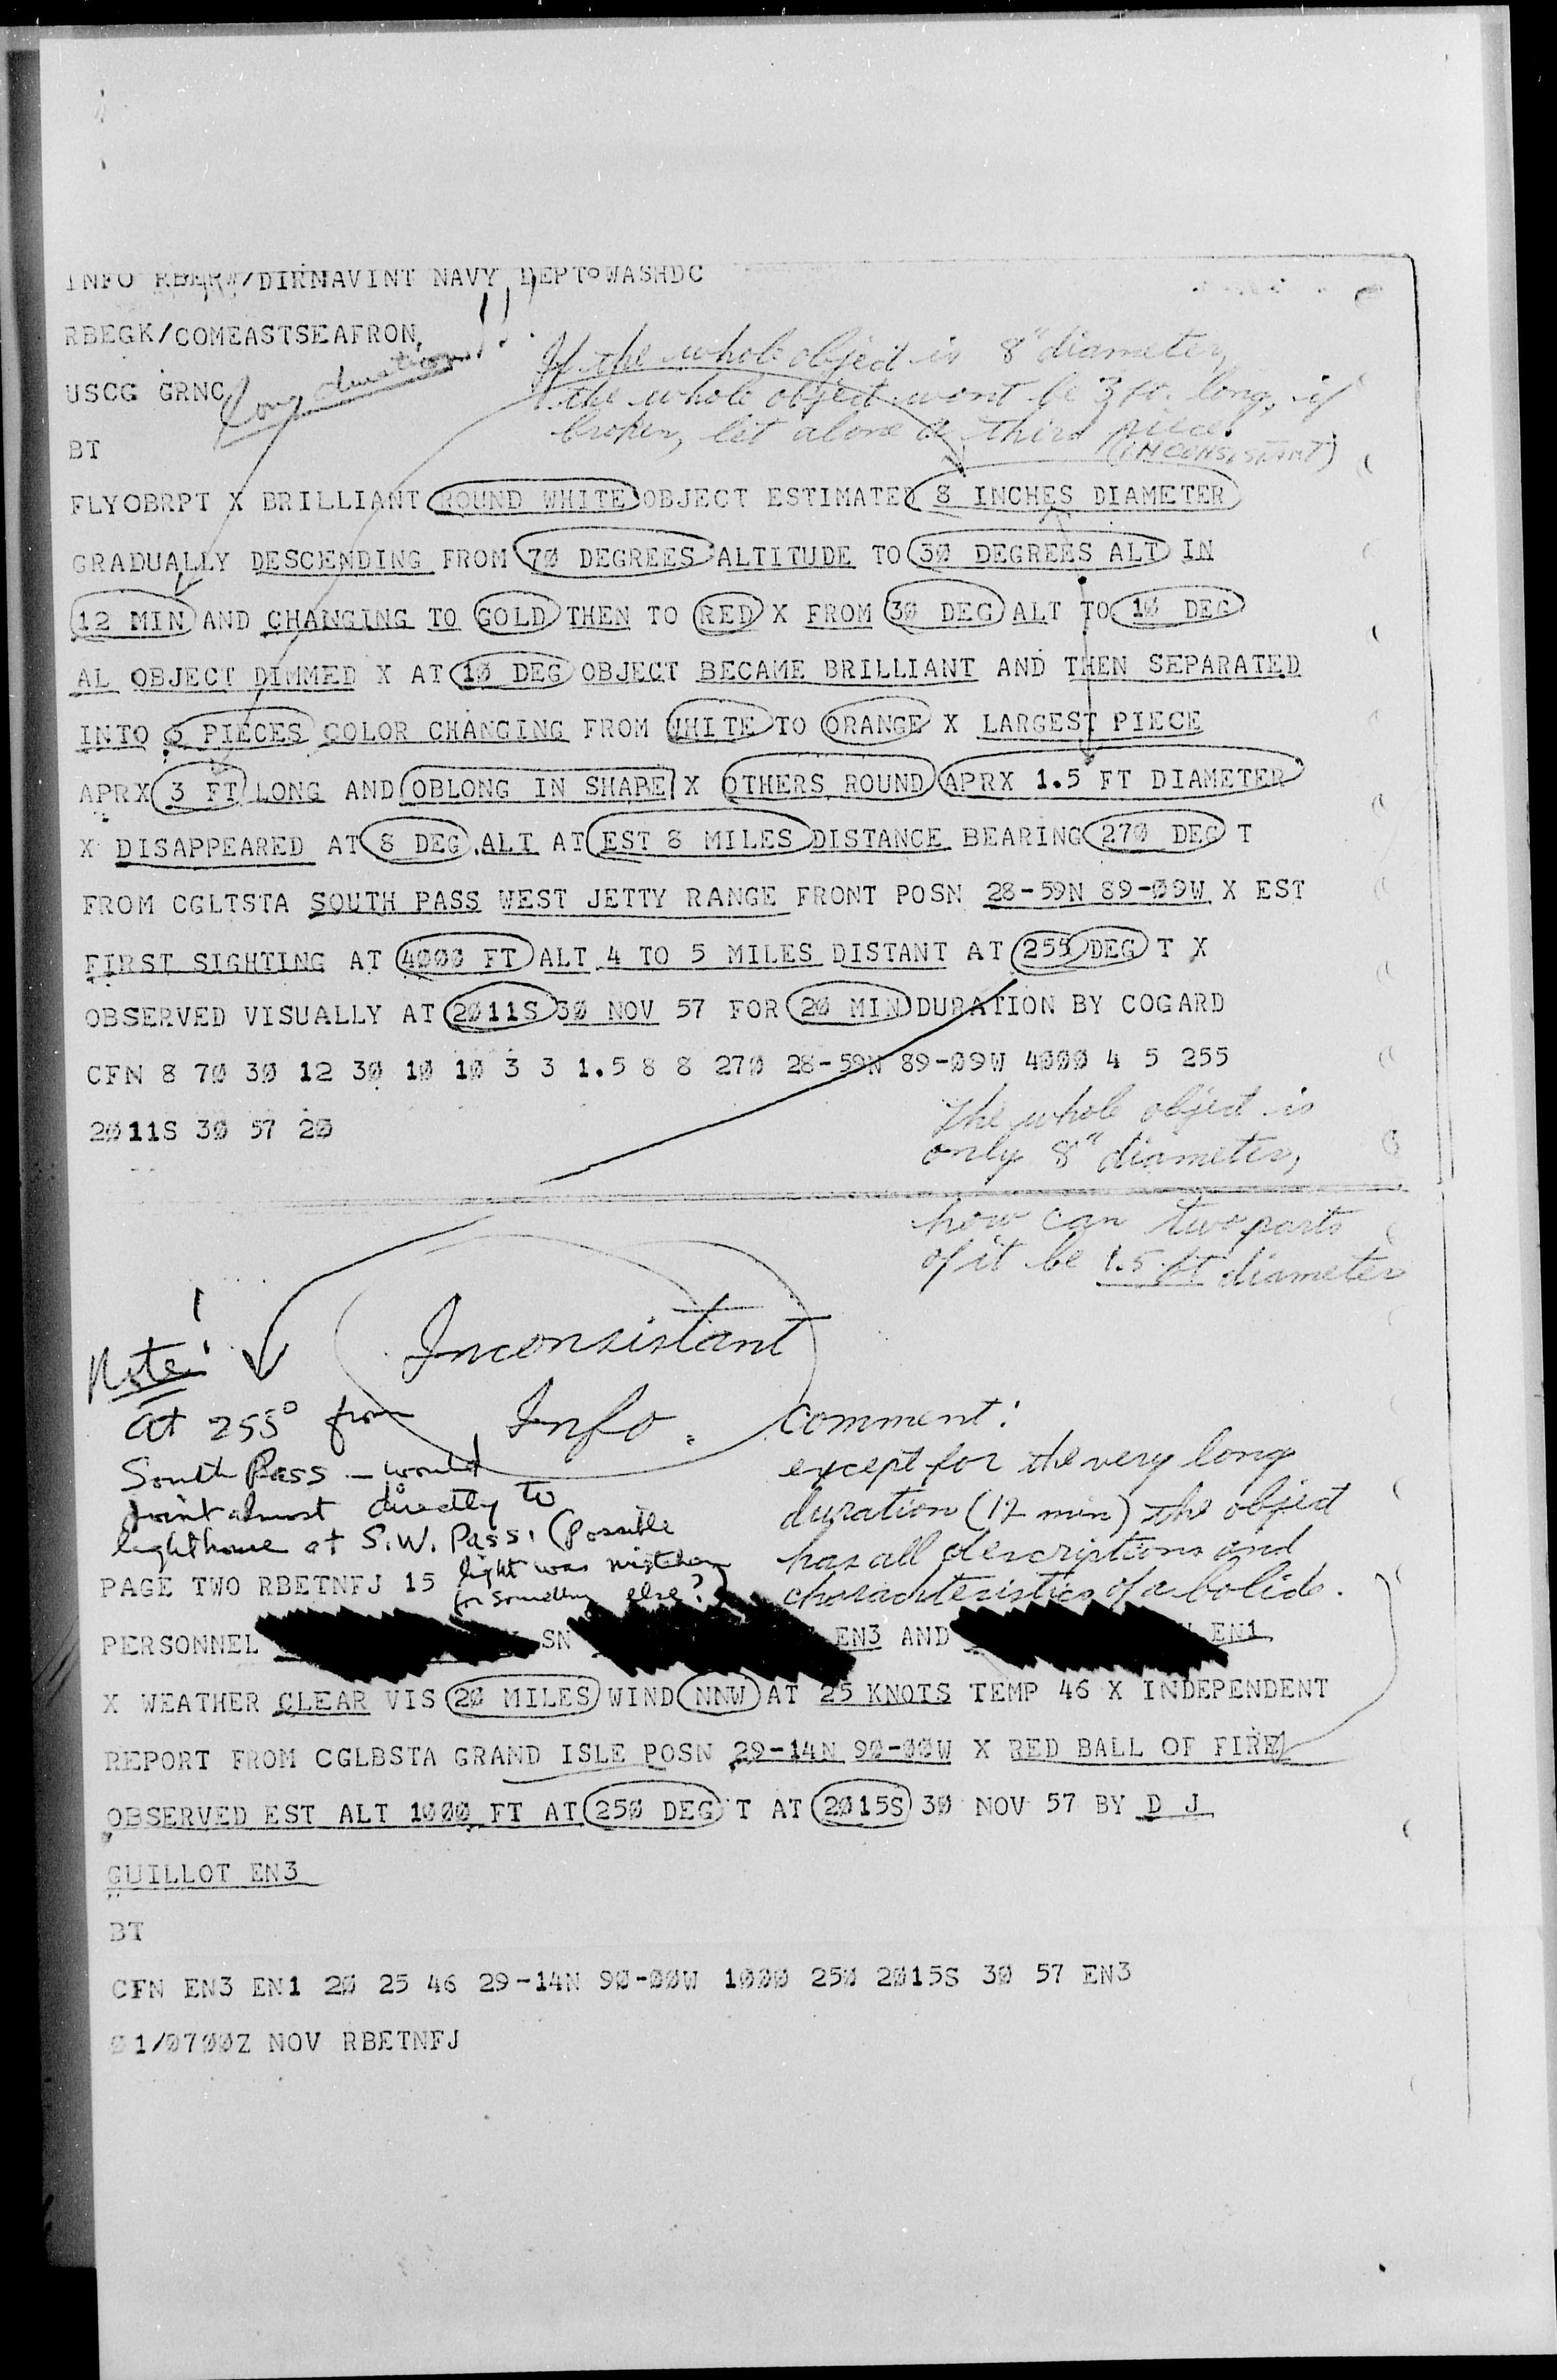 INFO RBEPW/DIRNAVINT NAVY DEPT WASHDC
RBEGK/COMEASTSEAFRON
USCG GRNC
Long duration!!
If the whole object is 8" diameter,
the whole object wont be 3 ft. long, if
broken, let alone a third piece.
(INCONSISTANT)
BT
FLYOBRPT X BRILLIANT ROUND WHITE OBJECT ESTIMATED 8 INCHES DIAMETER
GRADUALLY DESCENDING FROM 70 DEGREES ALTITUDE TO 30 DEGREES ALT IN
12 MIN AND CHANGING TO GOLD THEN TO RED X FROM 30 DEG ALT TO 10 DEG
AL OBJECT DIMMED X AT 10 DEG OBJECT BECAME BRILLIANT AND THEN SEPARATED
INTO 3 PIECES COLOR CHANGING FROM WHITE TO ORANGE X LARGEST PIECE
APRX 3 FT LONG AND OBLONG IN SHAPE X OTHERS ROUND APRX 1.5 FT DIAMETER
X DISAPPEARED AT 8 DEG ALT AT EST 8 MILES DISTANCE BEARING 270 DEG T
FROM CGLTSTA SOUTH PASS WEST JETTY RANGE FRONT POSN 28-59N 89-09W X EST
FIRST SIGHTING AT 4000 FT ALT 4 TO 5 MILES DISTANT AT 255 DEG T X
OBSERVED VISUALLY AT 2011S 30 NOV 57 FOR 20 MIN DURATION BY COGARD
CFN 8 70 30 12 30 10 10 3 3 1.5 8 8 270 28-59N 89-09W 4000 4 5 255
2011S 30 57 20
The whole object is
only 8" diameter,
how can two parts
of it be 1.5 ft diameter
Inconsistant
Info.
Note!
at 255° from
South Pass — would
point almost directly to
lighthouse at S.W. Pass. (Possible
light was mistaken
for something else?)
comment:
except for the very long
duration (12 min) the object
has all descriptions and
charachteristics of a bolide.
PAGE TWO RBETNFJ 15
PERSONNEL SN EN3 AND EN1
X WEATHER CLEAR VIS 20 MILES WIND NNW AT 25 KNOTS TEMP 46 X INDEPENDENT
REPORT FROM CGLBSTA GRAND ISLE POSN 29-14N 90-00W X RED BALL OF FIRE
OBSERVED EST ALT 1000 FT AT 250 DEG T AT 2015S 30 NOV 57 BY D J
GUILLOT EN3
BT
CFN EN3 EN1 20 25 46 29-14N 90-00W 1000 250 2015S 30 57 EN3
01/0700Z NOV RBETNFJ